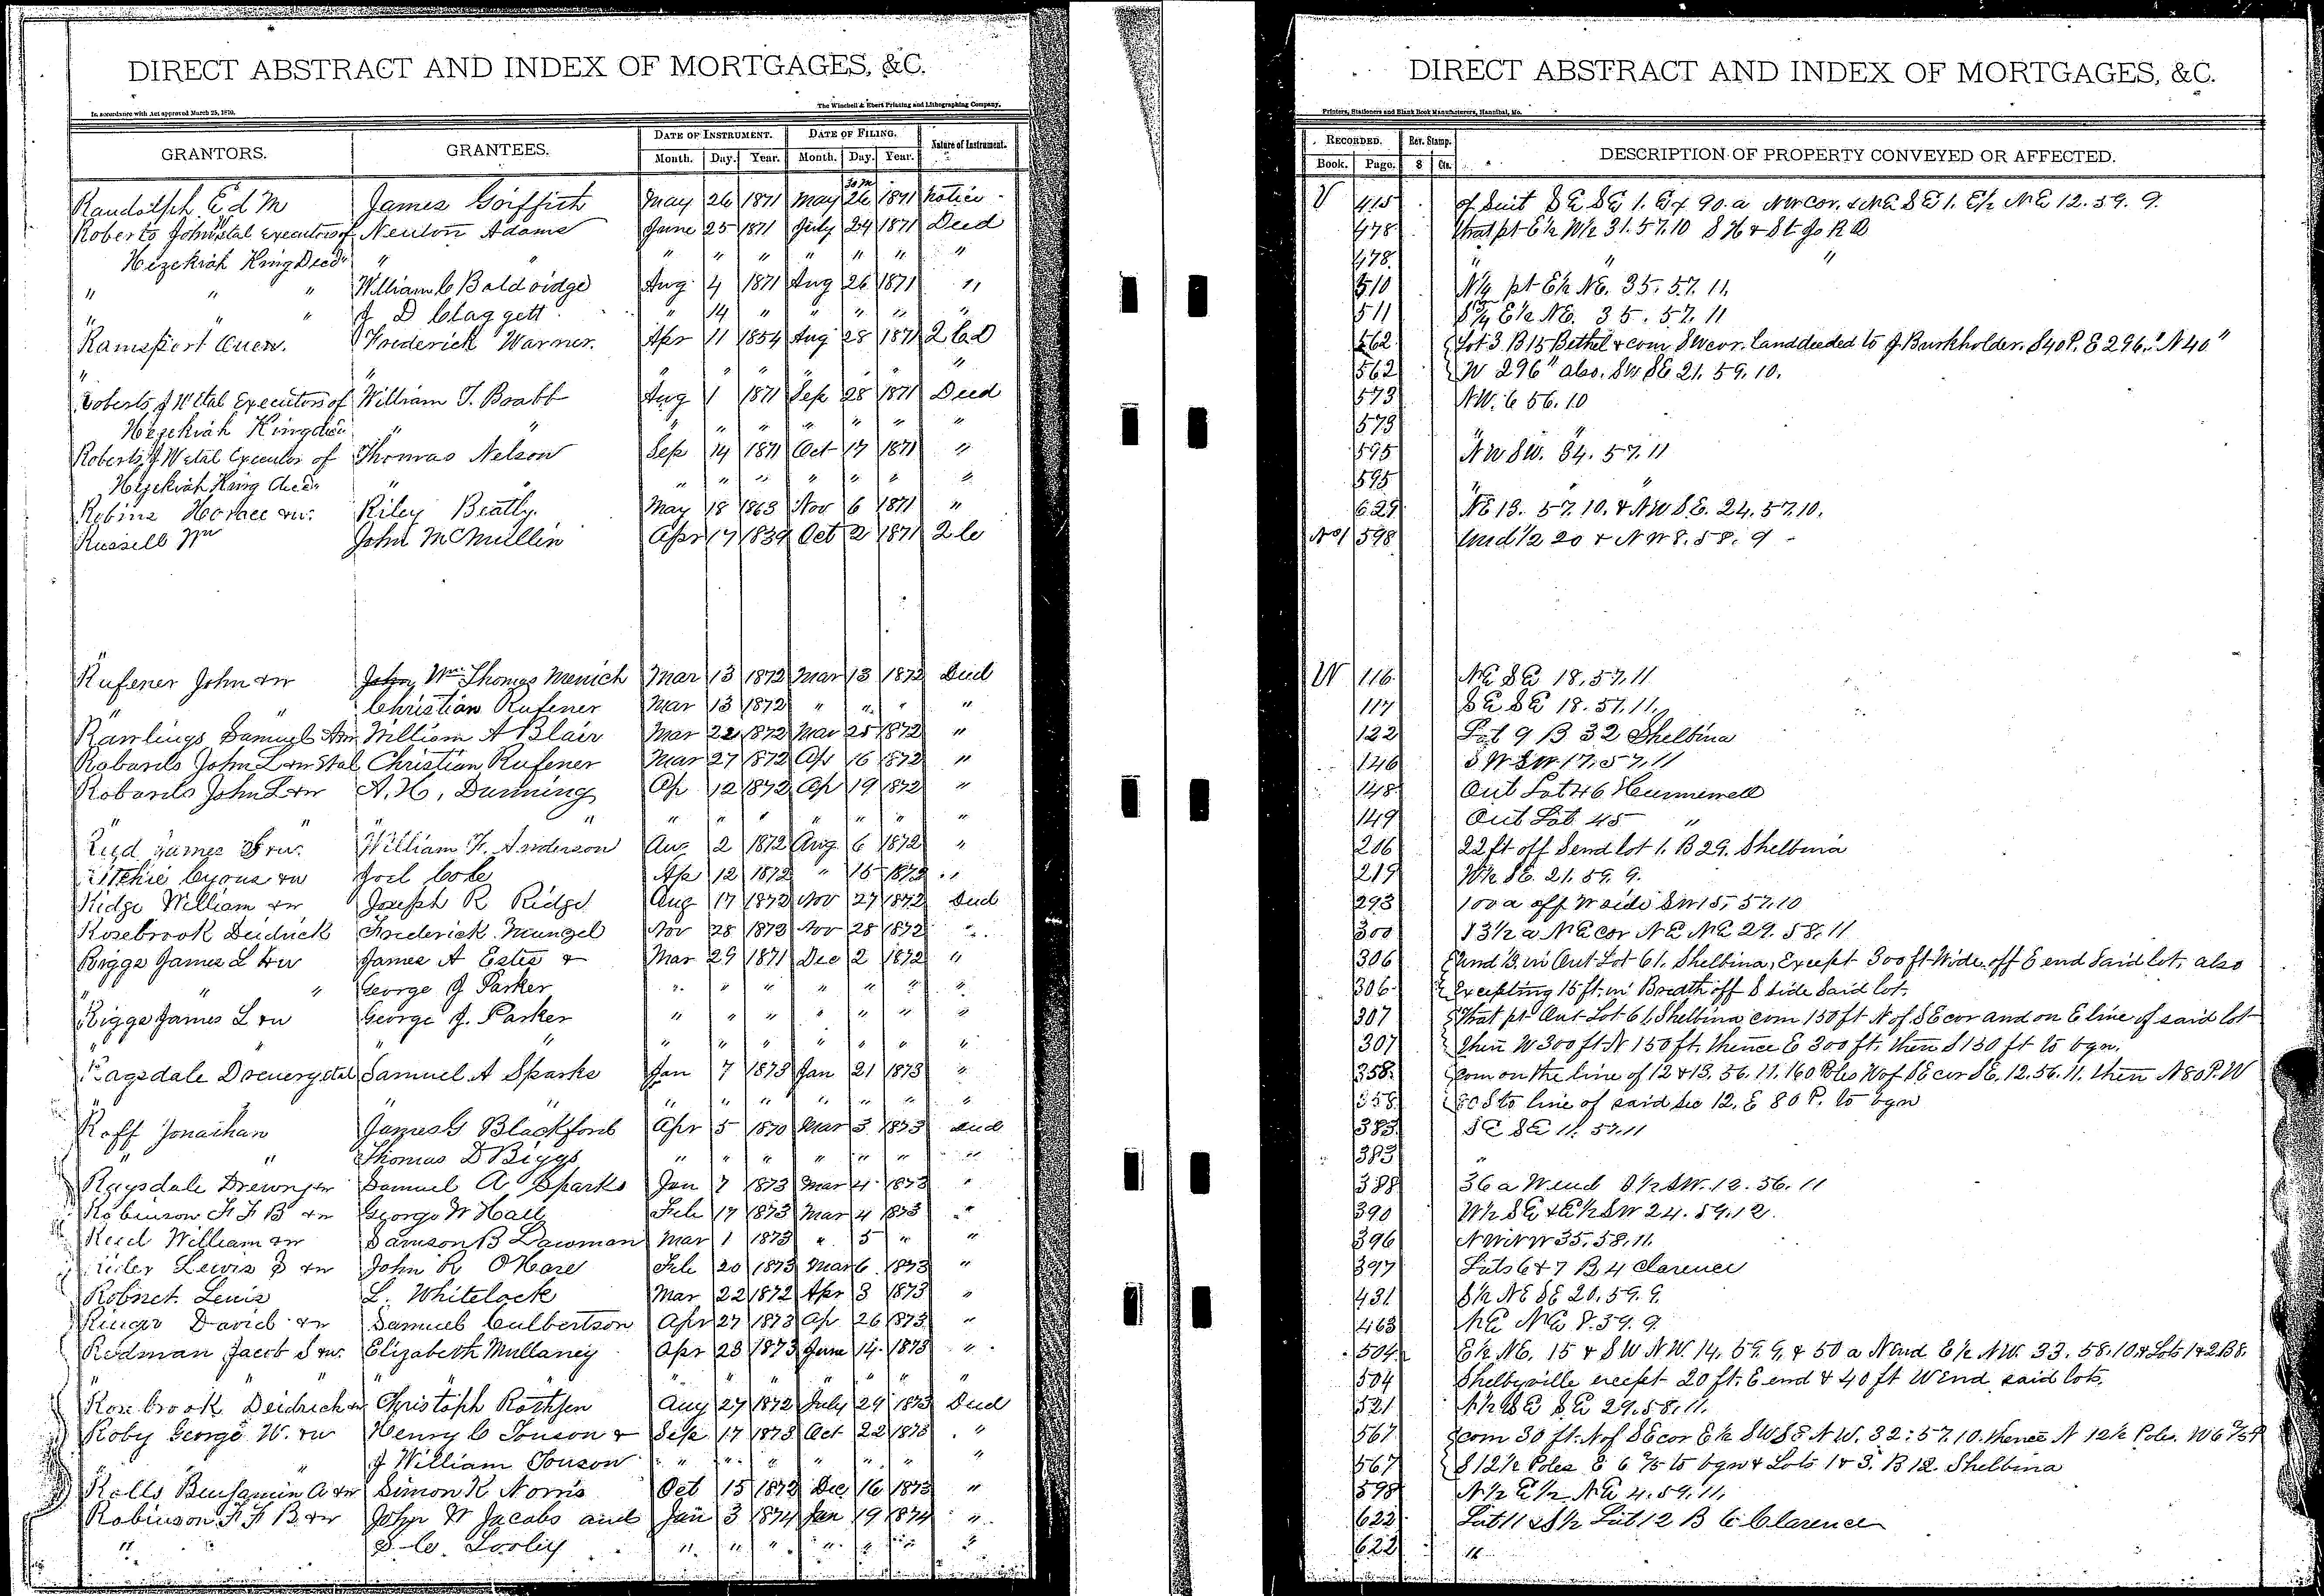 DIRECT ABSTRACT AND INDEX OF MORTGAGES, &C.
In accordance with Act approved March 25, 1870.
The Winchell & Ebert Printing and Lithographing Company,
GRANTORS. GRANTEES. DATE OF INSTRUMENT. DATE OF FILING. Nature of Instrument.
Month. Day. Year. Month. Day. Year.
Randolph Ed M James Griffith May 26 1871 May 26 1871 Notice
Roberts John W etal Executors of Newton Adams June 25 1871 July 24 1871 Deed
Hezekiah King Decd " " " " " " " " "
" " " William C Baldridge Aug 4 1871 Aug 26 1871 "
" " " J D Claggett " 14 " " " " "
Ramsport Owen. Frederick Warner. Apr 11 1854 Aug 28 1871 2 C D
" " " " " " " "
Roberts J W etal Executors of William T. Brabb Aug 1 1871 Sep 28 1871 Deed
Hezekiah King decd " " " " " " " " "
Roberts J W etal Executor of Thomas Nelson Sep 14 1871 Oct 17 1871 "
Hezekiah King decd " " " " " " " " "
Robins Horace & w. Riley Beatly. May 18 1863 Nov 6 1871 "
Russell Wm John McMullin Apr 17 1839 Oct 2 1871 2 C
Rufener John & w Wm Thomas Menich Mar 13 1872 Mar 13 1872 Deed
" " Christian Rufener Mar 13 1872 " " " "
Rawlings Samuel & w William A Blair Mar 22 1872 Mar 25 1872 "
Robards John L & w etal Christian Rufener Mar 27 1872 Apr 16 1872 "
Robards John L & w A. H. Dunning Ap 12 1872 Ap 19 1872 "
" " " " " " " " " " "
Reed James & w. William F. Anderson Aug 2 1872 Aug 6 1872 "
Ritchie Cyrus & w Joel Cole Ap 12 1872 " 15 1872 "
Ridge William & w Joseph R Ridge Aug 17 1872 Nov 27 1872 Deed
Rosebrook Deidrick Frederick Mungel Nov 28 1872 Nov 28 1872 "
Riggs James L & w James A Estes & Mar 29 1871 Dec 2 1872 "
" " " George J Parker " " " " " " "
Riggs James L & w George J. Parker " " " " " " "
" " " " " " " " " "
Ragsdale Drewery etal Samuel A Sparks Jan 7 1873 Jan 21 1873 "
" " " " " " " " " "
Roff Jonathan James G Blackford Apr 5 1870 Mar 3 1873 Deed
" " Thomas D Biggs " " " " " " "
Ragsdale Drewry & w Samuel A Sparks Jan 7 1873 Mar 4 1873 "
Robinson F F B & w George W Hall Feb 17 1873 Mar 4 1873 "
Reed William & w Samson B Lawman Mar 1 1873 " 5 " "
Rider Lewis & w John R O'Hare Feb 20 1873 Mar 6 1873 "
Robnet Lewis L. Whitelock Mar 22 1872 Apr 3 1873 "
Ringer David & w Samuel Culbertson Apr 27 1873 Ap 26 1873 "
Redman Jacob S & w. Elizabeth Mullaney Apr 23 1873 June 14 1873 "
" " " " " " " " " "
Rosebrook Deidrick & w Christoph Rothjen Aug 27 1872 July 29 1873 Deed
Roby George W. & w Henry C Touson & Sep 17 1873 Oct 22 1873 "
" " J William Touson " " " " " " "
Ralls Benjamin A & w Simon K Norris Oct 15 1873 Dec 16 1873 "
Robinson F F B & w John W Jacobs and Jan 3 1874 Jan 19 1874 "
" S. C. Tooley " " " " " " "
DIRECT ABSTRACT AND INDEX OF MORTGAGES, &C.
Printers, Stationers and Blank Book Manufacturers, Hannibal, Mo.
RECORDED. Rev. Stamp. DESCRIPTION OF PROPERTY CONVEYED OR AFFECTED.
Book. Page. $ Cts.
V 415 of Suit S E SE 1. Ex 90. a NW cor. & NE SE 1. E½ NE 12. 59. 9.
478 that pt E½ W½ 31. 57. 10 S H & St Jo R R
478 " " "
510 N¼ pt E½ NE. 35. 57. 11.
511 S¾ E½ NE. 35. 57. 11
562 Lot 3 B 15 Bethel & com SW cor. land deeded to J. Burkholder. S 40 P. E 296." N 40"
562 W 296" also. SW SE 21. 59. 10.
573 NW. 6 56. 10
573 "
595 NW SW. 34. 57. 11
595 "
629 NE 13. 57. 10. & NW SE. 24. 57. 10.
No 1 598 und ½ 20 & NW 8. 58. 9
W 116 NE SE 18. 57. 11
117 SE SE 18. 57. 11.
122 Lot 9 B 32 Shelbina
146 SW SW 17. 57. 11
148 Out Lot 46 Hunnewell
149 Out Lot 45 "
206 22 ft off S end lot 1. B 29. Shelbina
219 W½ SE. 21. 59. 9.
293 100 a off W side SW 15, 57. 10
300 13½ a NE cor NE NE 29. 58. 11
306 und ⅓ in Out Lot 61. Shelbina, Except 300 ft Wide off E end Said lot, also
306 Excepting 15 ft. in Breadth off S side Said lot.
307 that pt Out Lot 61 Shelbina com 150 ft N of SE cor and on E line of said lot
307 then W 300 ft N 150 ft. thence E 300 ft. then S 150 ft to bgn.
358 com on the line of 12 & 13. 56. 11. 160 Poles W of SE cor SE. 12. 56. 11. then N 80 P. W
358 80 S to line of said Sec 12. E 80 P. to bgn
383 SE SE 11. 57. 11
383 "
388 36 a W end S½ SW. 12. 56. 11
390 W½ SE & E½ SW 24. 59. 12.
396 NW NW 35. 58. 11.
397 Lots 6 & 7 B 4 Clarence
431 S½ NE SE 20. 59. 9.
463 NE NE 8. 59. 9.
504 E½ NE. 15 & SW NW. 14. 59. 9. & 50 a N end E½ NW. 33. 58. 10. & Lots 1 & 2 B 8.
504 Shelbyville except 20 ft. E end & 40 ft W end said lots.
521 N½ SE SE 29. 58. 11.
567 com 30 ft. N of SE cor E½ SW SE NW. 32. 57. 10. thence N 12½ Poles. W 6
567 S 12½ Poles E 6 to bgn & Lots 1 & 3. B 12. Shelbina
598 N½ E½ NE 4. 59. 11.
622 Lot 11 & S½ Lot 12 B 6 Clarence
622 "